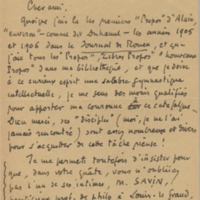 Cher ami.
Quoique j'ai lu les premiers "Propos" d'Alain
"environ" — comme dit Duhamel — les années 1905
et 1906 dans le Journal de Rouen, et que
j'aie tous les "Propos", "Libres Propos" & "Nouveaux
Propos" dans ma bibliothèque, et que je goûte
à ce curieux esprit une salubre gymnastique
intellectuelle, je me sens des moins qualifiés
pour apporter ma couronne à ce catafalque.
Dieu merci, ses "disciples" (moi, je ne l'ai
jamais rencontré) sont assez nombreux et divers
pour s'acquitter de cette tâche pieuse !
Je me permets toutefois d'insister pour
que, dans votre quête, vous n'oubliiez
pas l'un de ses intimes, M. SAVIN,
prof. de philo à Louis-le-Grand,